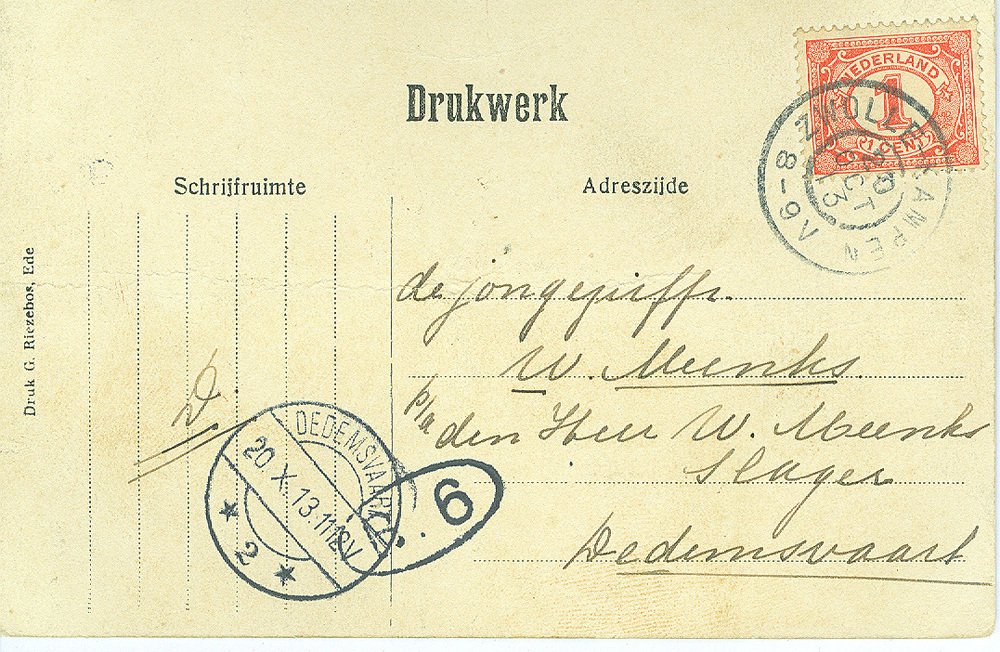 NEDERLAND
1
1 CENT
ZWOLLE-KAMPEN
20
OCT
13
V6-8
Drukwerk
Schrijfruimte
Adreszijde
Druk G. Riezebos, Ede
de jongejuffr.
W. Meenks.
p/a
den Heer W. Meenks
Slager
Dedemsvaart
D.
DEDEMSVAART
20.X.13.11-12V
2
6